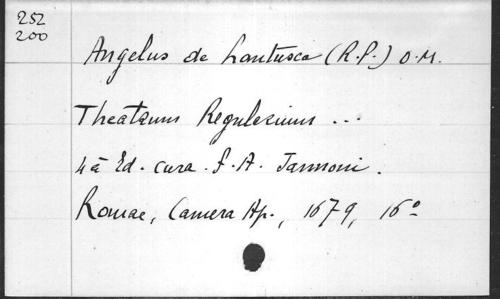 252
200
Angelus de Lantusca (R.P.) O.M.
Theatrum Regularium ...
4ā Ed. cura. f. A. Jannoni.
Romae, Camera Ap., 1679, 16º